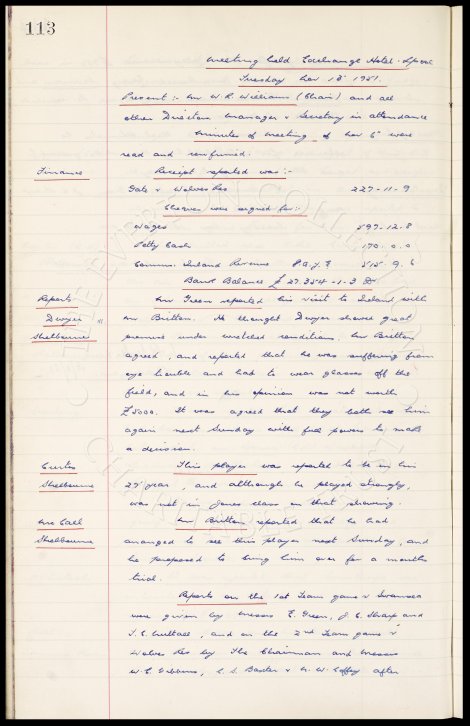 113
Meeting held Exchange Hotel. L'pool
Tuesday Nov 13th 1951.
Present:- Mr W. R. Williams (Chair) and all
other Directors manager & Secretary in attendance
Minutes of meeting of Nov 6th were
read and confirmed.
Finance
Receipt reported was:-
Gate v Wolves Res 227-11-9
Cheques were signed for:-
Wages 597-12.8
Petty Cash 170.0.0
Comms. Inland Revenue P.A.Y.E. 515.9.6
Bank Balance £ 27.354-1-3 Dr
Reports
Dwyer
Shelbourne
Mr Green reported his visit to Ireland with
Mr Britton. He thought Dwyer showed great
promise under wretched conditions. Mr Britton
agreed, and reported that he was suffering from
eye trouble and had to wear glasses off the
field, and in his opinion was not worth
£5000. It was agreed that they both see him
again next Sunday with full powers to make
a decision.
Curtis
Shelbourne
This player was reported to be in his
27th year, and although he played strongly,
was not in Jones class on that showing.
Shelbourne
Mr Britton reported that he had
arranged to see this player next Sunday, and
he proposed to bring him over for a months
trial.
Reports on the 1st Team game v Swansea
were given by Messrs E. Green, J. C. Sharp and
T. C. Nuttall, and on the 2nd Team game v
Wolves Res by The Chairman and Messrs
W. C. Gibbins, C. S. Baxter & N. W. Coffey after
THE EVERTON COLLECTION